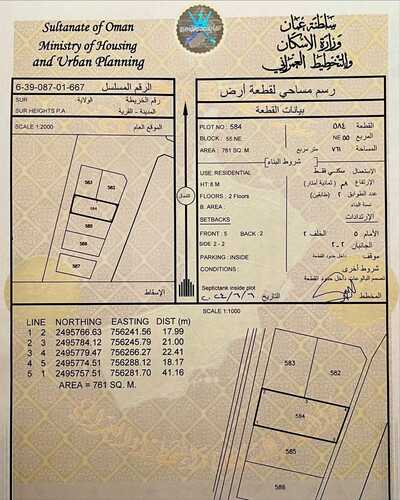 Sultanate of Oman
Ministry of Housing
and Urban Planning
سلطنة عمان
وزارة الإسكان
والتخطيط العمراني
6-39-087-01-667 الرقم المسلسل
SUR رقم الخريطة الولاية
SUR HEIGHTS P.A المدينة - القرية
SCALE 1:2000 الموقع العام
583
582
584
585
586
587
الإسقاط
الشمال
رسم مساحي لقطعة أرض
بيانات القطعة
PLOT NO : 584 ٥٨٤ القطعة
BLOCK : 55 NE NE ٥٥ المربع
AREA : 761 SQ. M ٧٦١ متر مربع المساحة
شروط البناء
USE: RESIDENTIAL الاستعمال سكني فقط
HT:8 M الارتفاع ٨م (ثمانية أمتار)
FLOORS : 2 Floors عدد الطوابق ٢ (طابقين)
B. AREA : نسبة البناء
SETBACKS الإرتدادات
FRONT : 5 BACK : 2 الأمام ٥ الخلف ٢
SIDE 2 - 2 الجانبان ٢-٢
PARKING : INSIDE موقف داخل حدود القطعة
CONDITIONS : شروط اخرى
Septictank inside plot تصمم البالوعات داخل حدود القطعة
التاريخ المخطط
SCALE 1:1000
LINE NORTHING EASTING DIST (m)
1 2 2495766.63 756241.56 17.99
2 3 2495784.12 756245.79 21.00
3 4 2495779.47 756266.27 22.41
4 5 2495774.51 756288.12 18.17
5 1 2495757.51 756281.70 41.16
AREA = 761 SQ. M.
583
582
584
585
586